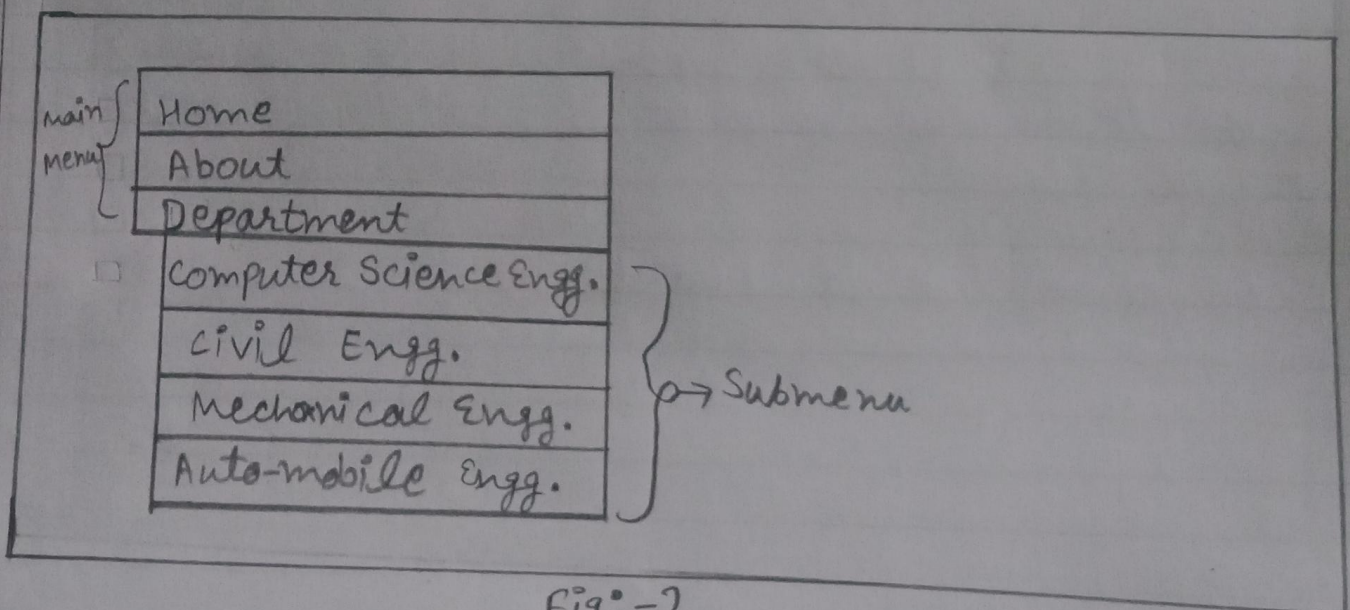 main
menu
Home
About
Department
Computer Science Engg.
Civil Engg.
Mechanical Engg.
Auto-mobile Engg.
Submenu